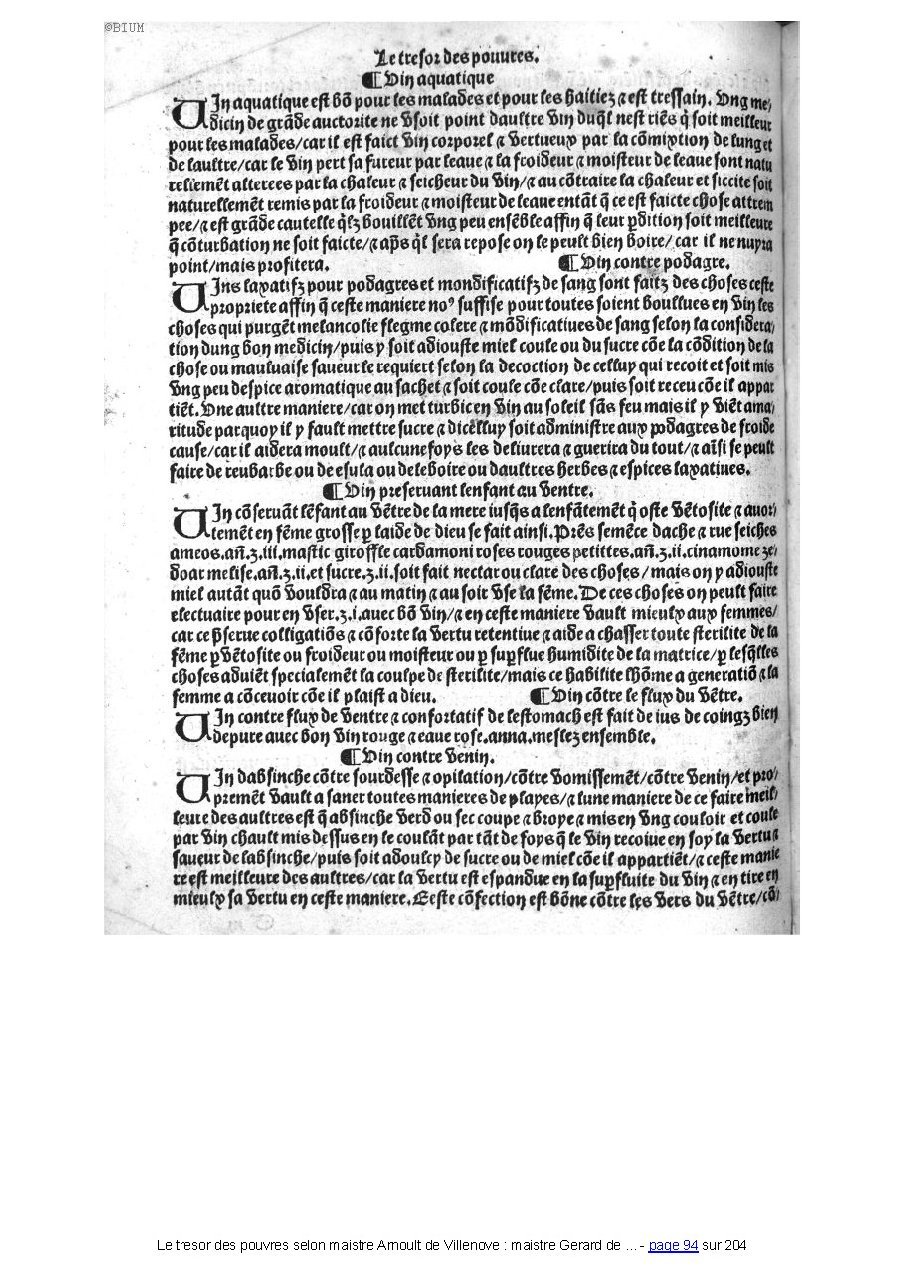 ©BIUM
Le tresor des pouures.
¶ Vin aquatique
VIn aquatique est bõ pour les malades et pour les haitiez ⁊ est tressain. Vng me/
dicin de grãde auctorite ne vsoit point daultre vin duq̃l nest riẽs q̃ soit meilleur
pour les malades/car il est faict vin corporel ⁊ vertueux par la cõmixtion de lung et
de laultre/car le vin pert sa fureur par leaue ⁊ la froideur ⁊ moisteur de leaue sont natu
rellemẽt alterees par la chaleur ⁊ seicheur du vin/⁊ au cõtraire la chaleur et siccite soit
naturellemẽt remis par la froideur ⁊ moisteur de leaue entãt q̃ ce est faicte chose attrem
pee/⁊ est grãde cautelle q̃lz bouillẽt vng peu ensẽble affin q̃ leur p̃dition soit meilleure
q̃ cõturbation ne soit faicte/⁊ ap̃s q̃l sera repose on le peult bien boire/car il ne nuyra
point/mais profitera. ¶ Vin contre podagre.
VIns laxatifz pour podagres et mondificatifz de sang sont faitz des choses ceste
propriete affin q̃ ceste maniere noꝰ suffise pour toutes soient boullues en vin les
choses qui purgẽt melancolie flegme colere ⁊ mõdificatiues de sang selon la considera/
tion dung bon medicin/puis y soit adiouste miel coule ou du sucre cõe la cõdition de la
chose ou mauluaise saueur le requiert selon la decoction de celluy qui recoit et soit mis
vng peu despice aromatique au sachet ⁊ soit coule cõe clare/puis soit receu cõe il appar
tiẽt. Vne aultre maniere/car on met turbic en vin au soleil sãs feu mais il y viẽt ama/
ritude parquoy il y fault mettre sucre ⁊ dicelluy soit administre aux podagres de froide
cause/car il aidera moult/⁊ aulcunefoys les deliurera ⁊ guerira du tout/⁊ aĩsi se peult
faire de reubarbe ou de esula ou deleboire ou daultres herbes ⁊ espices laxatiues.
¶ Vin preseruant lenfant au ventre.
VIn cõseruãt lẽfant au vẽtre de la mere iusq̃s a lenfãtemẽt q̃ oste vẽtosite ⁊ auor/
temẽt en fẽme grosse ꝑ laide de dieu se fait ainsi. Prẽs semẽce dache ⁊ rue seiches
ameos.añ.ʒ.iii.mastic giroffle cardamoni roses rouges petittes.añ.ʒ.ii.cinamome ze/
doar melise.añ.ʒ.ii.et sucre.ʒ.ii.soit fait nectar ou clare des choses/mais on y adiouste
miel autãt quõ vouldra ⁊ au matin ⁊ au soir vse la fẽme. De ces choses on peult faire
electuaire pour en vser.ʒ.i.auec bõ vin/⁊ en ceste maniere vault mieulx aux femmes/
car ce p̃serue colligatiõs ⁊ cõforte la vertu retentiue ⁊ aide a chasser toute sterilite de la
fẽme ꝑ vẽtosite ou froideur ou moisteur ou ꝑ suꝑflue humidite de la matrice/ꝑ lesq̃lles
choses aduiẽt specialemẽt la coulpe de sterilite/mais ce habilite lhõme a generatiõ ⁊ la
femme a cõceuoir cõe il plaist a dieu. ¶ Vin cõtre le flux du vẽtre.
VIn contre flux de ventre ⁊ confortatif de lestomach est fait de ius de coingz bien
depure auec bon vin rouge ⁊ eaue rose.anna.meslez ensemble.
¶ Vin contre venin.
VIn dabsinche cõtre sourdesse ⁊ opilation/cõtre vomissemẽt/cõtre venin/et pro/
premẽt vault a saner toutes manieres de playes/⁊ lune maniere de ce faire meil/
leure des aultres est q̃ absinche verd ou sec coupe ⁊ broye ⁊ mis en vng couloir et coule
par vin chault mis dessus en le coulãt par tãt de foys q̃ le vin recoiue en soy la vertu ⁊
saueur de labsinche/puis soit adoulcy de sucre ou de miel cõe il appartiẽt/⁊ ceste manie
re est meilleure des aultres/car la vertu est espandue en la suꝑfluite du vin ⁊ en tire en
mieulx sa vertu en ceste maniere. Ceste cõfection est bõne cõtre les vers du vẽtre/cõ/
Le tresor des pouvres selon maistre Arnoult de Villenove : maistre Gerard de ... - page 94 sur 204